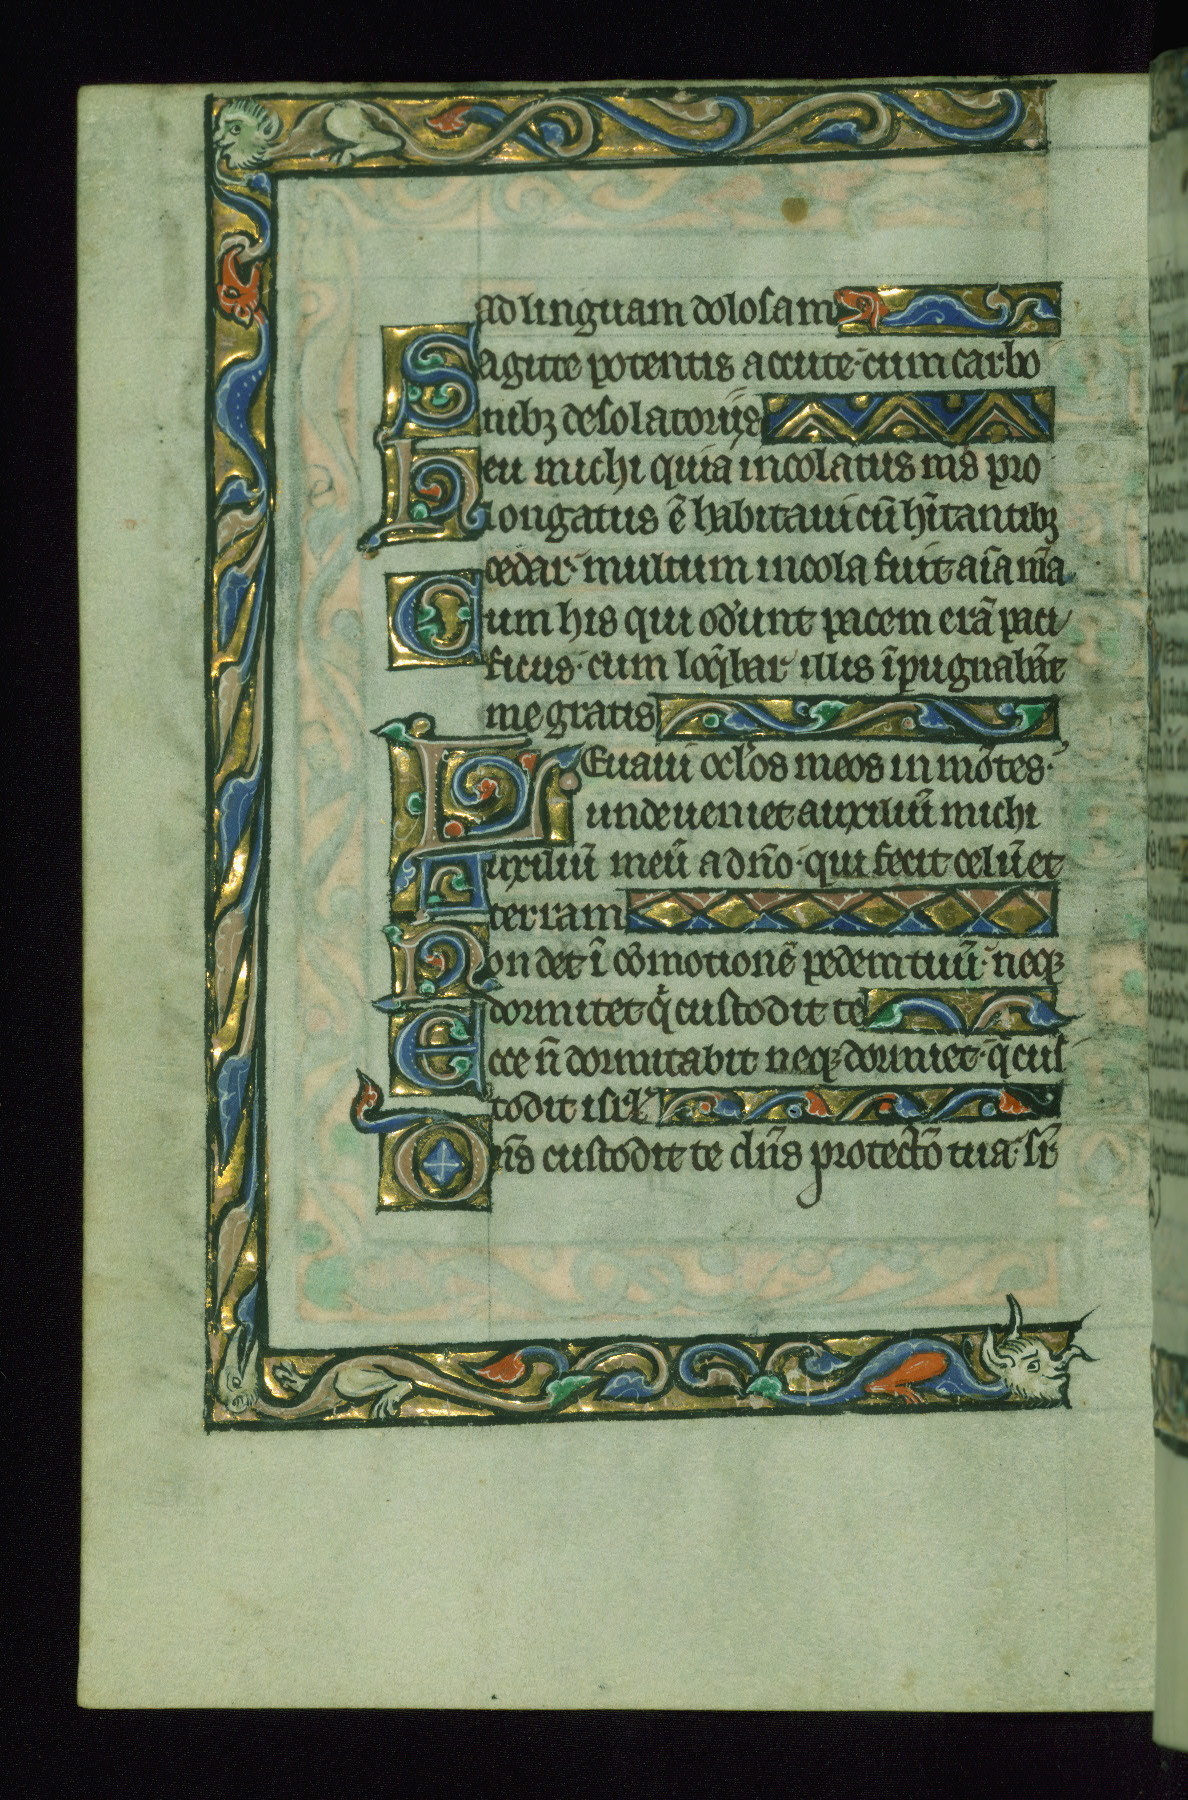 ad linguam dolosam
Sagitte potentis accute· cum carbo
nibꝫ desolatoriis
Heu michi quia incolatus mꝰ pro
longatus ē habitaui cū hītantibꝫ
cedar· multum incola fuit aīa mīa
Cum his qui oderunt pacem erā paci
ficus· cum loq̄bar illis īpugnabāt
me gratis
LEuaui oclos meos in mōtes·
unde ueniet auxiliū michi
Auxiliū meū a dño· qui fecit celū et
terram
Non det ī cōmotionē pedem tuū· neqꝫ
dormitet q̇ custodit te
Ecce ñ dormitabit neqꝫ dormiet· q̇ cus
todit isrl
Dñs custodit te dñs protectō tua· sr̄